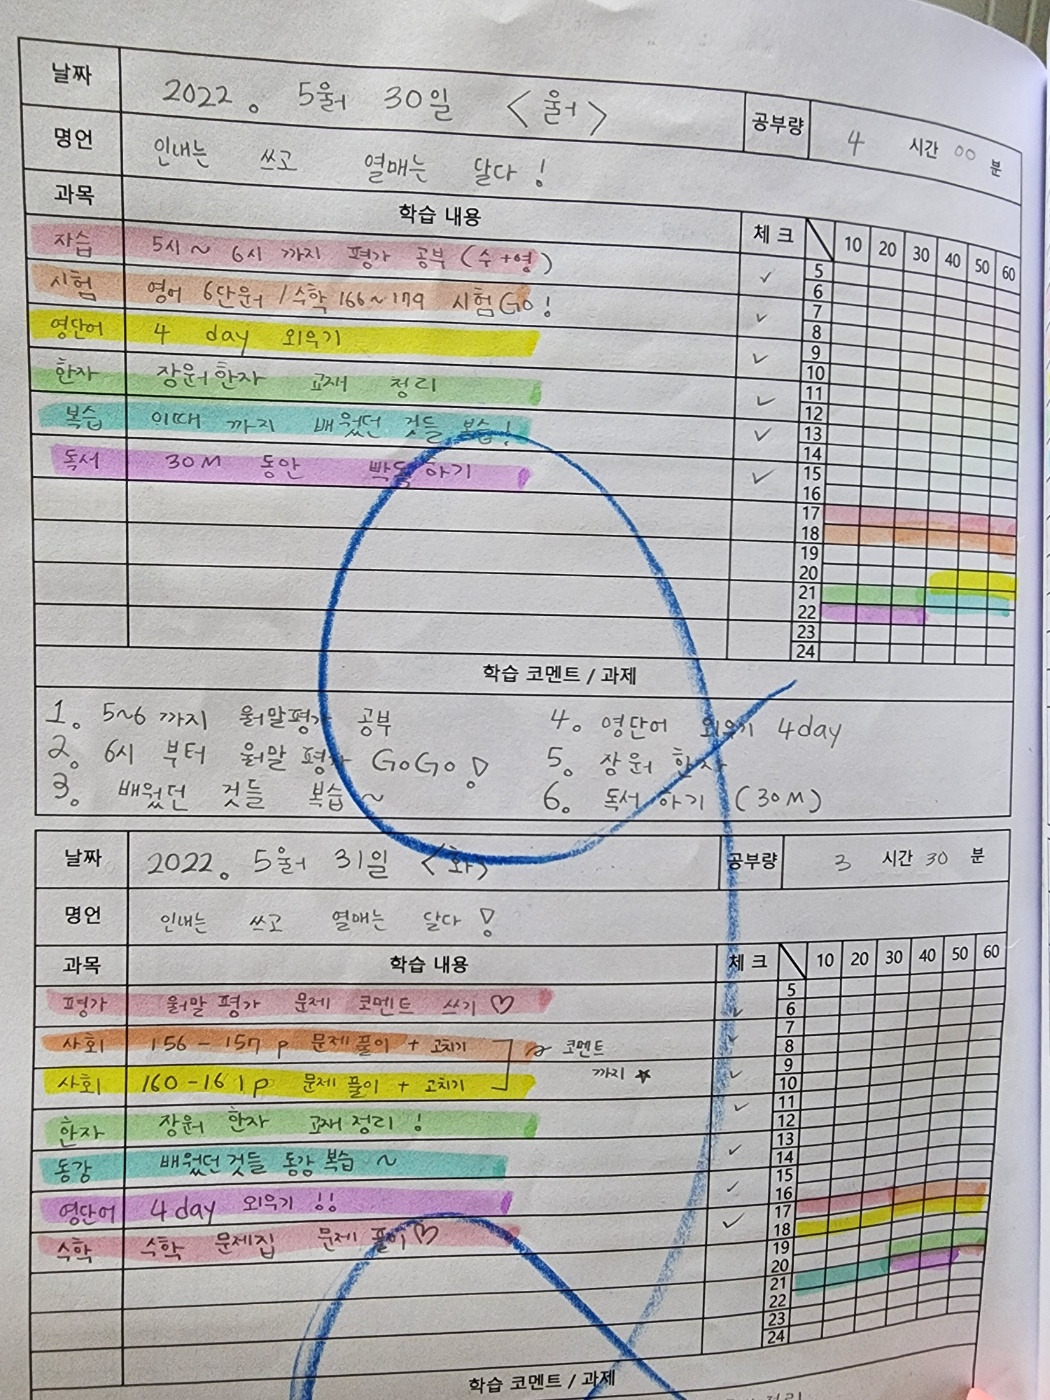 날짜 2022. 5월 30일 <월> 공부량 4 시간 00 분
명언 인내는 쓰고 열매는 달다!
과목 학습 내용 체 크 10 20 30 40 50 60
자습 5시~ 6시 까지 평가 공부 (수+영)
시험 영어 6단원 / 수학 166~179 시험Go!
영단어 4 day 외우기
한자 장원한자 교재 정리
복습 이때 까지 배웠던 것들 복습!
독서 30M 동안 빡독하기
5
6
7
8
9
10
11
12
13
14
15
16
17
18
19
20
21
22
23
24
학습 코멘트 / 과제
1. 5~6 까지 월말평가 공부
2. 6시 부터 월말 평가 GoGo!
3. 배웠던 것들 복습 ~
4. 영단어 외우기 4day
5. 장원 한자
6. 독서 하기 (30M)
날짜 2022. 5월 31일 <화> 공부량 3 시간 30 분
명언 인내는 쓰고 열매는 달다!
과목 학습 내용 체 크 10 20 30 40 50 60
평가 월말 평가 문제 코멘트 쓰기♡
사회 156-157 p 문제풀이 + 고치기 코멘트
까지 ★
사회 160-161p 문제 풀이 + 고치기
한자 장원 한자 교재정리!
동강 배웠던것들 동강 복습 ~
영단어 4day 외우기!!
수학 수학 문제집 문제 풀이♡
5
6
7
8
9
10
11
12
13
14
15
16
17
18
19
20
21
22
23
24
학습 코멘트 / 과제